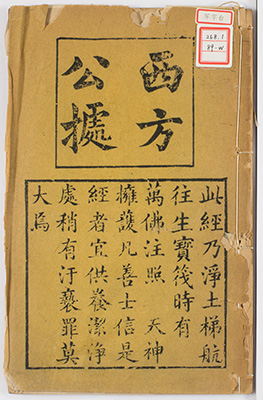 西方
公據
此經乃淨土梯航
往生寶筏時有
萬佛注照　天神
擁護凡善士信是
經者宜供養潔淨
處稍有汙褻罪莫
大焉
写字台
268.1
89-W